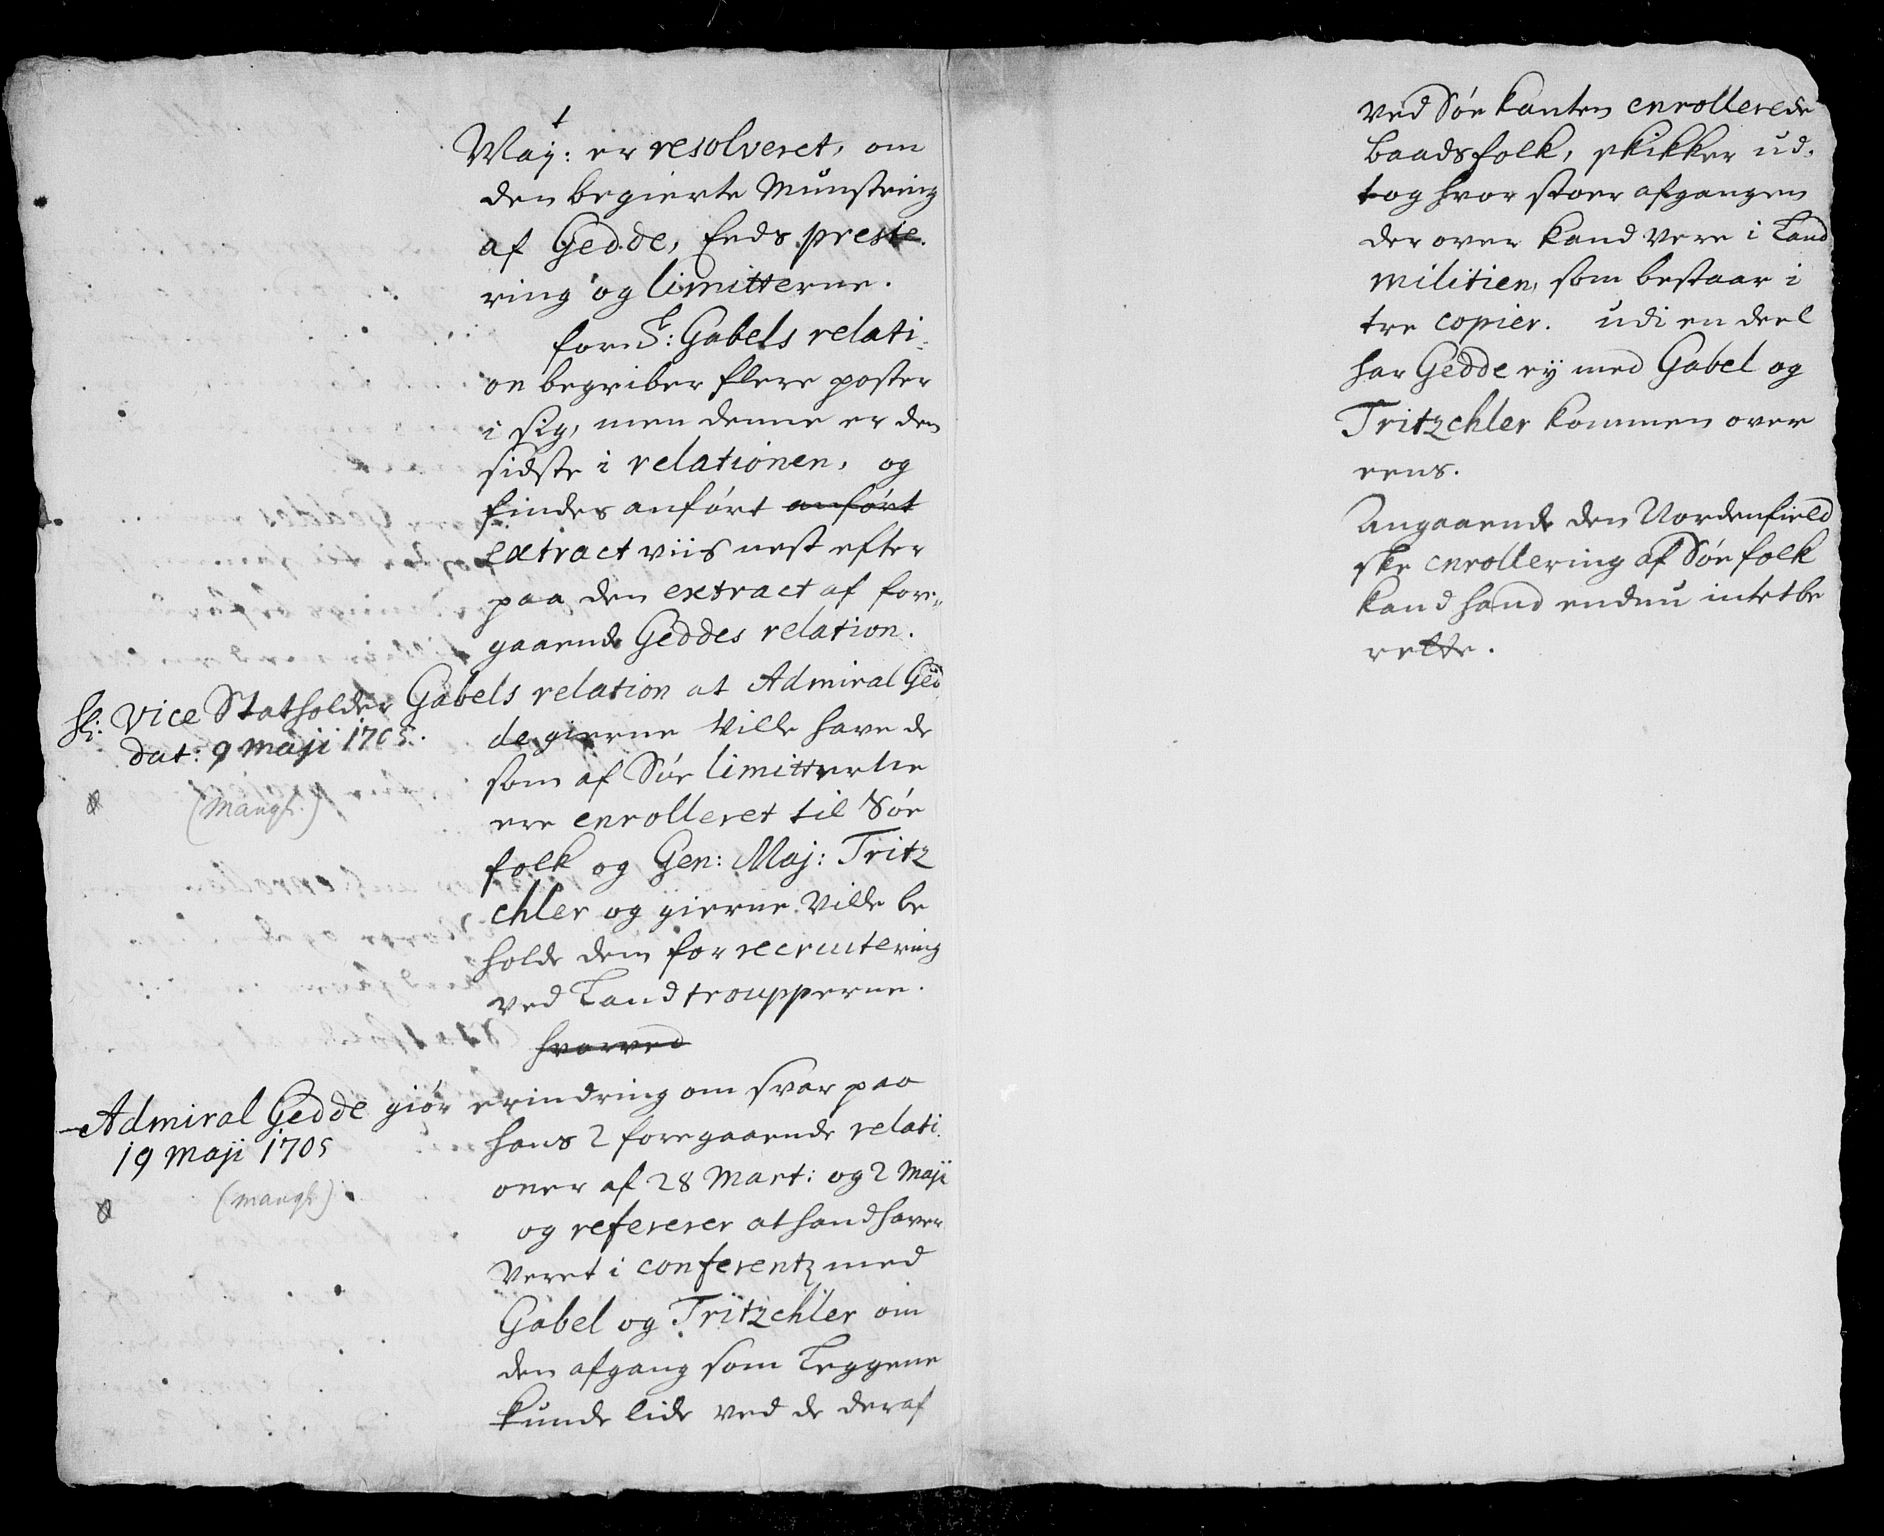 May: er resolveret, om
den begierte Munstring
af Gedde, Eeds preste
ring og limitterne.
forn: Gabels relati
on begriber flere poster
i sig, men denne er den
sidste i relationen, og
findes anfórt anfórt
extract viis nest efter
paa den extract af fore
gaaende Geddes relation.
H: Vice Statholder Gabels relation at Admiral Ged
dat: 9 maji 1705.
de gierne Ville have de
som af Søe limitterne
ere enrolleret til Søe
(Mangl.)
folk og Gen: Maj: Tritz
chler og gierne Ville be
holde dem for recruitering
ved Land troupperne.
hvorved
Admiral Gedde giór erindring om svar paa
19 maji 1705
hans 2 foregaaende relati
oner af 28 Mart: og 2 Maji
(mangl.)
og refererer at hand haver
Veret i conferentz med
Gabel og Tritzchler om
den afgang som Leggene
kunde lide ved de deraf
ved Søe kanten enrollerede
baadsfolk, skikker ud
tog hvor stoer afgangen
der over kand vere i Land
militien, som bestaar i
tre copier. udi en deel
har Gedde ey med Gabel og
Tritzchler kommen over
eens.
Angaaende den Nordenfield
ske enrollering af Søe folk
kand hand endnu intet be
rette.